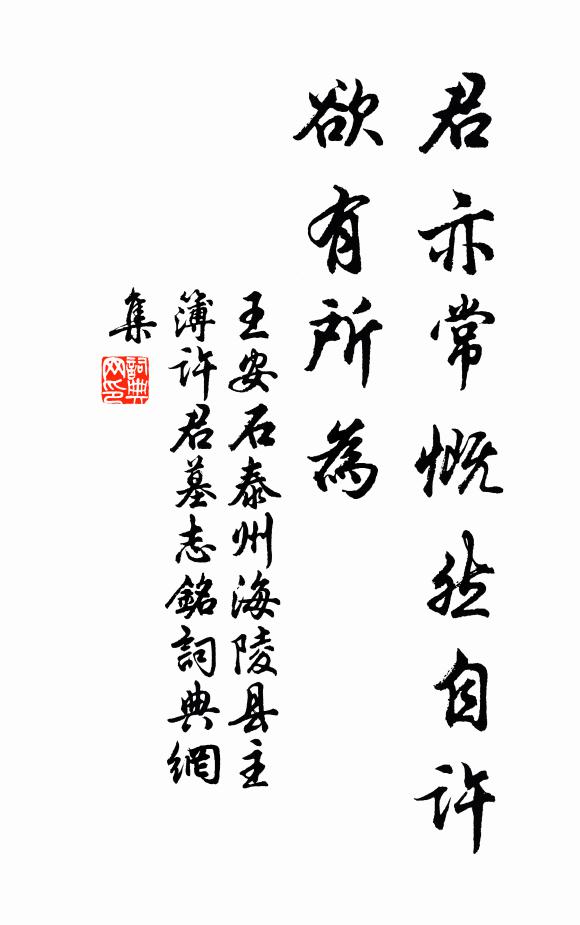 君亦常慨然自许
欲有所為
王安石泰州海陵县主
簿许君墓志銘詞典網
集
詞典
网印